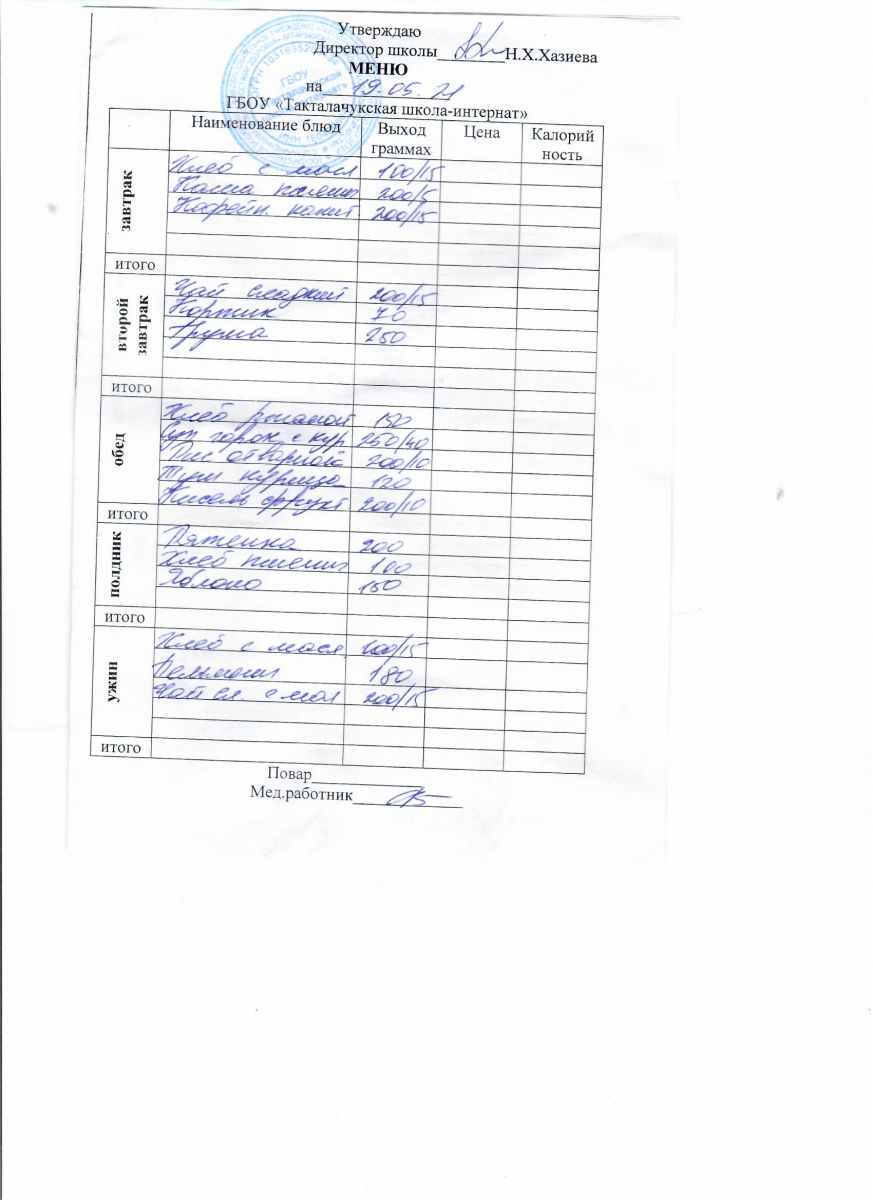 Утверждаю
Директор школы________Н.Х.Хазиева
МЕНЮ
на 19.05.21
ГБОУ «Такталачукская школа-интернат»
Наименование блюд Выход граммах Цена Калорий ность
завтрак
Хлеб с масл 100/15
Каша пшенн 200/5
Кофейн. напит 200/15
итого
второй завтрак
Чай сладкий 200/15
Коржик 70
Груша 250
итого
обед
Хлеб ржаной 150
Суп горох с кур 250/40
Рис отварной 200/10
Туш курица 120
Кисель фрукт 200/10
итого
полдник
Ряженка 200
Хлеб пшенич 100
Яблоко 150
итого
ужин
Хлеб с масл 100/15
Пельмени 180
Чай сл. с мол 200/15
итого
Повар_____________
Мед.работник_____________